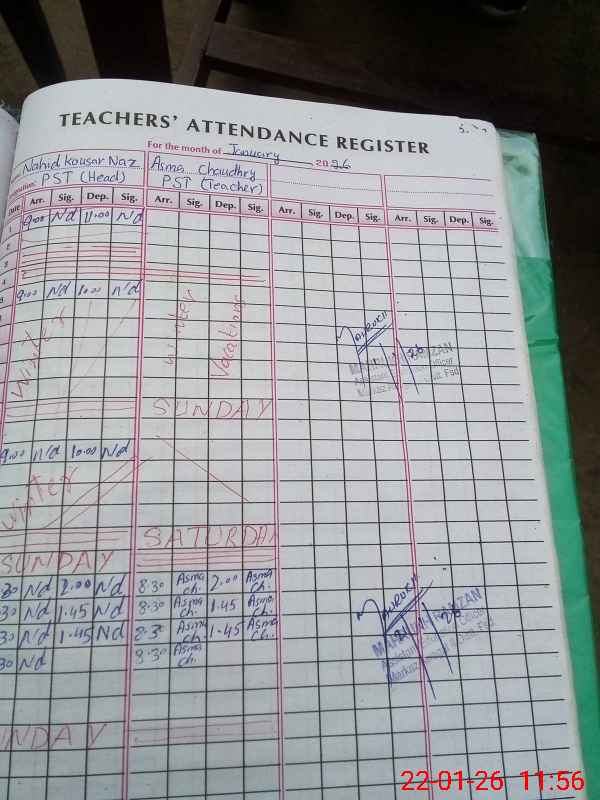 TEACHERS' ATTENDANCE REGISTER
For the month of January 2026
Nahid Kousar Naz Asma Chaudhry
PST (Head) PST (Teacher)
Date Arr. Sig. Dep. Sig. Arr. Sig. Dep. Sig. Arr. Sig. Dep. Sig. Arr. Sig. Dep. Sig.
1 9:00 Nd 11:00 Nd
2
3
4
9:00 Nd 10:00 Nd
winter winter Vacations
SUNDAY
9:00 Nd 10:00 Nd
winter
SATURDA
SUNDAY
30 Nd 2:00 Nd 8:30 Asma Ch. 2:00 Asma Ch.
30 Nd 1:45 Nd 8:30 Asma Ch. 1:45 Asma Ch.
30 Nd 1:45 Nd 8:30 Asma Ch. 1:45 Asma Ch.
30 Nd 8:30 Asma Ch.
NDAY
22-01-26 11:56